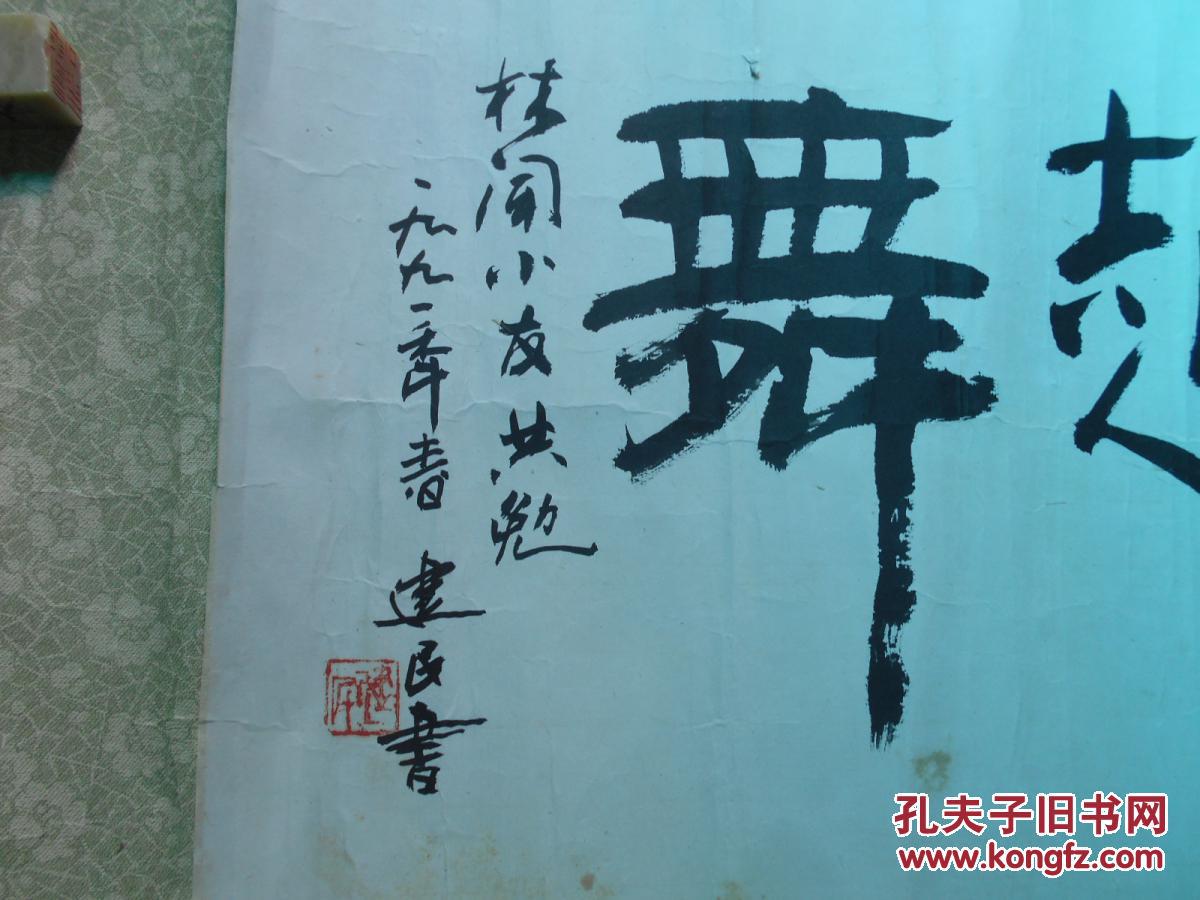 起
舞
小友共勉
一九九一年春 建民書
孔夫子旧书网
www.kongfz.com